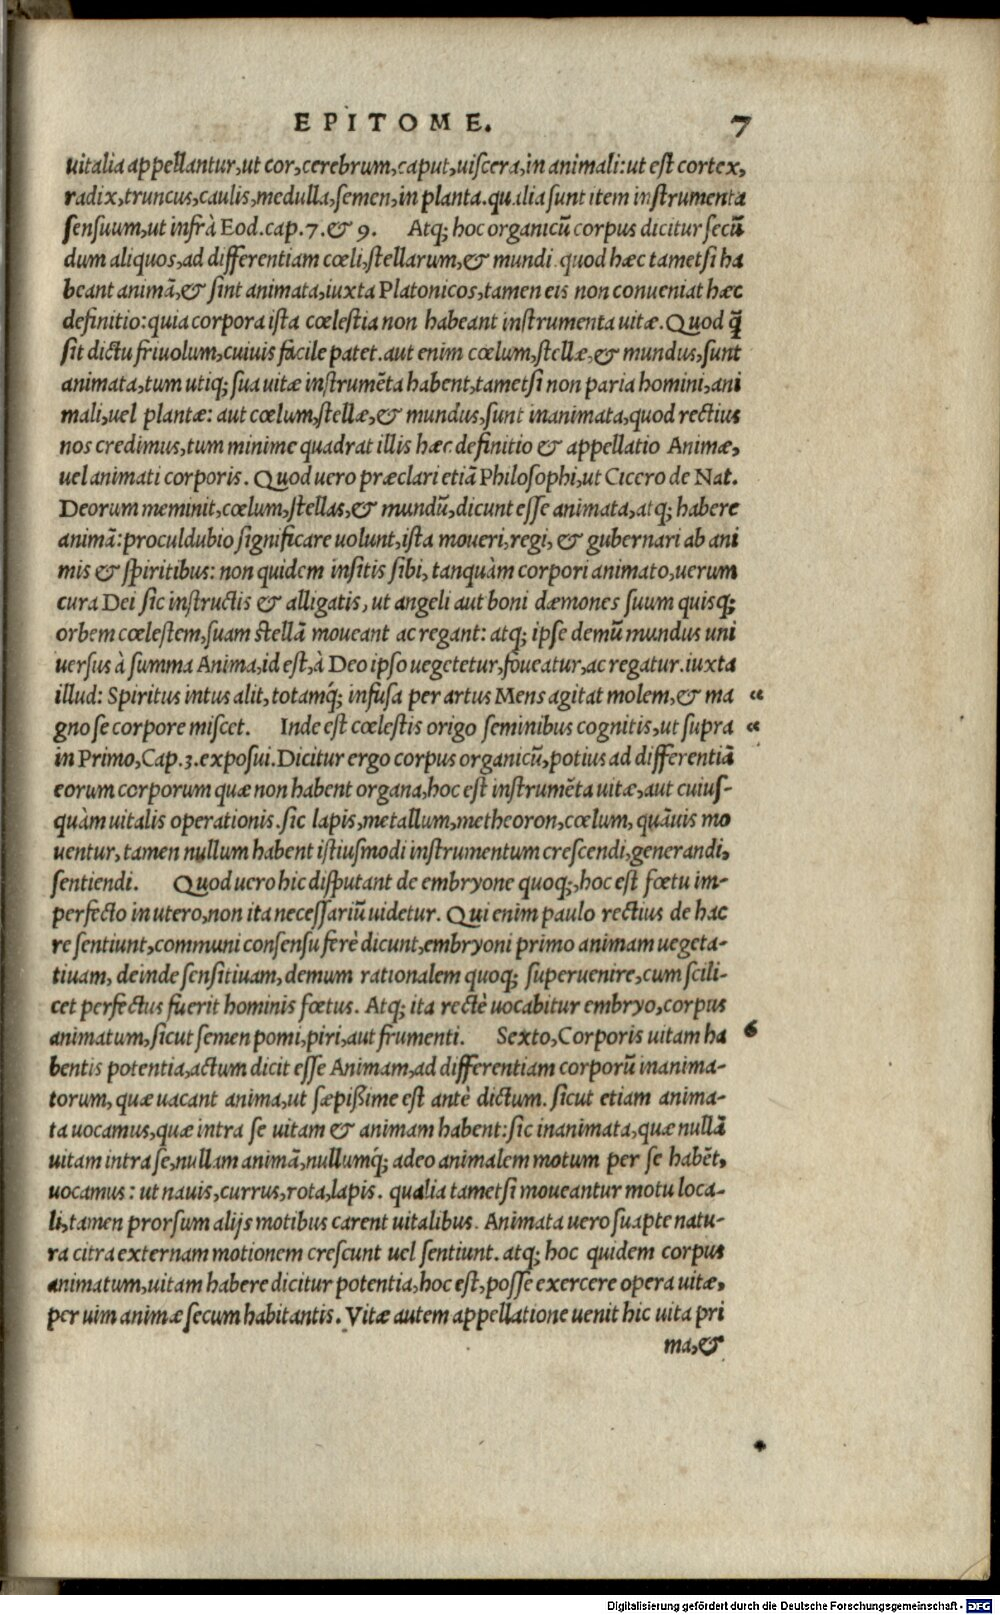 EPITOME. 7
uitalia appellantur,ut cor,cerebrum,caput,uiſcera,in animali:ut eſt cortex,
radix,truncus,caulis,medulla,ſemen,in planta.qualia ſunt item inſtrumenta
ſenſuum,ut infrà Eod.cap.7.& 9. Atq; hoc organicũ corpus dicitur ſecũ
dum aliquos,ad differentiam cœli,ſtellarum,& mundi.quod hæc tametſi ha
beant animã,& ſint animata,iuxta Platonicos,tamen eis non conueniat hæc
definitio:quia corpora iſta cœleſtia non habeant inſtrumenta uitæ.Quod q̃
ſit dictu friuolum,cuiuis facile patet.aut enim cœlum,ſtellæ,& mundus,ſunt
animata,tum utiq; ſua uitæ inſtrumẽta habent,tametſi non paria homini,ani
mali,uel plantæ: aut cœlum,ſtellæ,& mundus,ſunt inanimata,quod rectius
nos credimus,tum minime quadrat illis hæc definitio & appellatio Animæ,
uel animati corporis. Quod uero præclari etiã Philoſophi,ut Cicero de Nat.
Deorum meminit,cœlum,ſtellas,& mundũ,dicunt eſſe animata,atq; habere
animã:proculdubio ſignificare uolunt,iſta moueri,regi, & gubernari ab ani
mis & ſpiritibus: non quidem inſitis ſibi, tanquàm corpori animato,uerum
cura Dei ſic inſtructis & alligatis, ut angeli aut boni dæmones ſuum quisq;
orbem cœleſtem,ſuam ſtellã moueant ac regant: atq; ipſe demũ mundus uni
uerſus à ſumma Anima,id eſt,à Deo ipſo uegetetur,foueatur,ac regatur.iuxta
illud: Spiritus intus alit,totamq́; infuſa per artus Mens agitat molem,& ma “
gno ſe corpore miſcet. Inde eſt cœleſtis origo ſeminibus cognitis,ut ſupra “
in Primo,Cap.3.expoſui.Dicitur ergo corpus organicũ,potius ad differentiã
eorum corporum quæ non habent organa,hoc eſt inſtrumẽta uitæ,aut cuiuſ-
quàm uitalis operationis.ſic lapis,metallum,metheoron,cœlum, quãuis mo
uentur,tamen nullum habent iſtiuſmodi inſtrumentum creſcendi,generandi,
ſentiendi. Quod uero hic diſputant de embryone quoq;,hoc eſt fœtu im-
perfecto in utero,non ita neceſſariũ uidetur. Qui enim paulo rectius de hac
re ſentiunt,communi conſenſu ferè dicunt,embryoni primo animam uegeta-
tiuam, deinde ſenſitiuam,demum rationalem quoq; ſuperuenire,cum ſcili-
cet perfectus fuerit hominis fœtus. Atq; ita rectè uocabitur embryo,corpus
animatum,ſicut ſemen pomi,piri,aut frumenti. Sexto,Corporis uitam ha 6
bentis potentia,actum dicit eſſe Animam,ad differentiam corporũ inanima-
torum, quæ uacant anima,ut ſæpißime eſt antè dictum. ſicut etiam anima-
ta uocamus,quæ intra ſe uitam & animam habent:ſic inanimata,quæ nullã
uitam intra ſe,nullam animã,nullumq́; adeo animalem motum per ſe habẽt,
uocamus: ut nauis,currus,rota,lapis. qualia tametſi moueantur motu loca-
li,tamen prorſum alijs motibus carent uitalibus. Animata uero ſuapte natu-
ra citra externam motionem creſcunt uel ſentiunt. atq; hoc quidem corpus
animatum,uitam habere dicitur potentia,hoc eſt,poſſe exercere opera uitæ,
per uim animæ ſecum habitantis. Vitæ autem appellatione uenit hic uita pri
ma,&
Digitalisierung gefördert durch die Deutsche Forschungsgemeinschaft - DFG